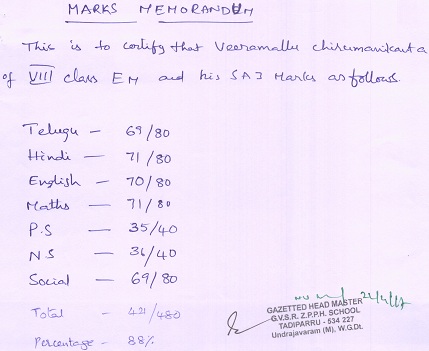 MARKS MEMORANDUM
This is to certify that Veeramallu chirumanikanta
of VIII class EM and his SA I Marks as follows.
Telugu - 69/80
Hindi - 71/80
English - 70/80
Maths - 71/80
P.S - 35/40
NS - 36/40
Social - 69/80
Total - 421/480
Percentage - 88%
GAZETTED HEAD MASTER
G.V.S.R. Z.P.P.H. SCHOOL
TADIPARRU - 534 227
Undrajavaram (M), W.G.Dt.